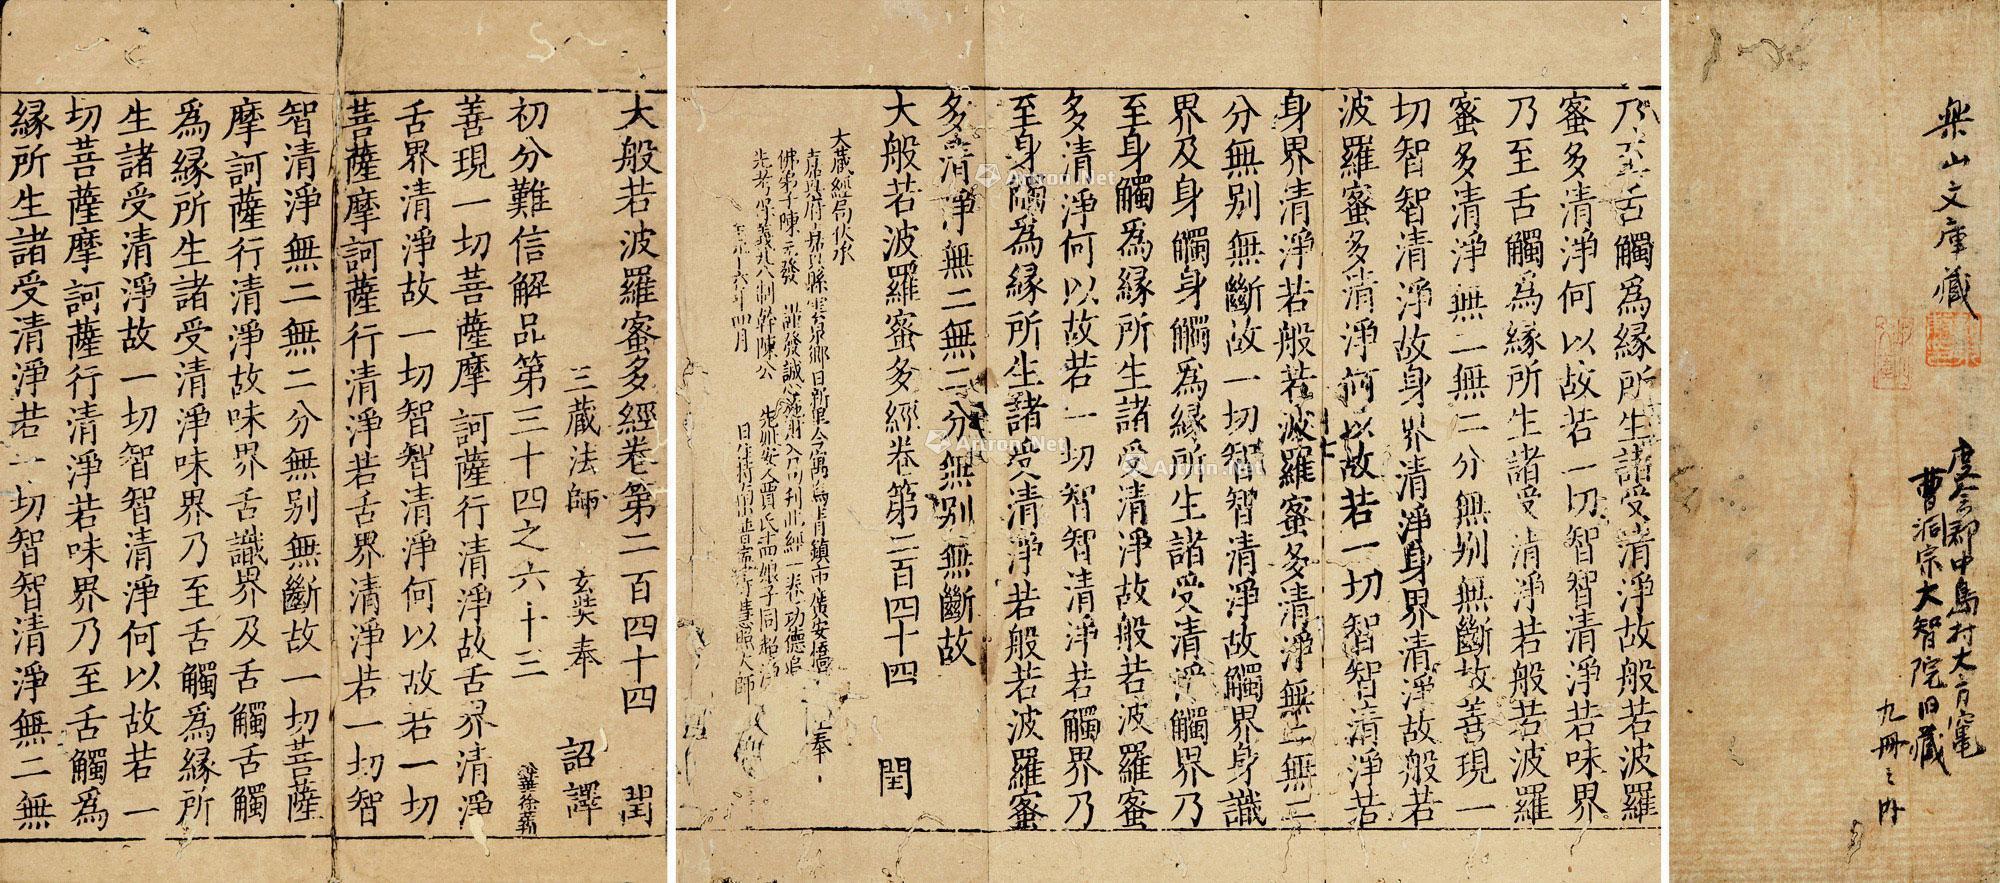 大般若波羅蜜多經卷第二百四十四 閏
三藏法師 玄奘奉 詔譯
初分難信解品第三十四之六十三
善現一切菩薩摩訶薩行清淨故舌界清淨
舌界清淨故一切智智清淨何以故若一切
菩薩摩訶薩行清淨若舌界清淨若一切智
智清淨無二無二分無別無斷故一切菩薩
摩訶薩行清淨故味界舌識界及舌觸舌觸
爲緣所生諸受清淨味界乃至舌觸爲緣所
生諸受清淨故一切智智清淨何以故若一
切菩薩摩訶薩行清淨若味界乃至舌觸爲
緣所生諸受清淨若一切智智清淨無二無
乃至舌觸爲緣所生諸受清淨故般若波羅
蜜多清淨何以故若一切智智清淨若味界
乃至舌觸爲緣所生諸受清淨若般若波羅
蜜多清淨無二無二分無別無斷故善現一
切智智清淨故身界清淨身界清淨故般若
波羅蜜多清淨何以故若一切智智清淨若
身界清淨若般若波羅蜜多清淨無二無二
分無別無斷故一切智智清淨故觸界身識
界及身觸身觸爲緣所生諸受清淨觸界乃
至身觸爲緣所生諸受清淨故般若波羅蜜
多清淨何以故若一切智智清淨若觸界乃
至身觸爲緣所生諸受清淨若般若波羅蜜
多清淨無二無二分無別無斷故
大般若波羅蜜多經卷第二百四十四 閏
大藏經局伏承
嘉興府嘉興縣雲泉鄉日新里今寓烏青鎮市廣安橋 奉
佛弟子陳元發 謹發誠心施財入局刊此經一卷功德追
先考 制幹陳公 先妣安人賈氏十四娘子同超淨
年四月 日 慧照大師
樂山文庫藏
度会郡中島村大字竃
曹洞宗大智院旧藏
九冊之内
Artron.Net
Artron.Net
Artron.Net